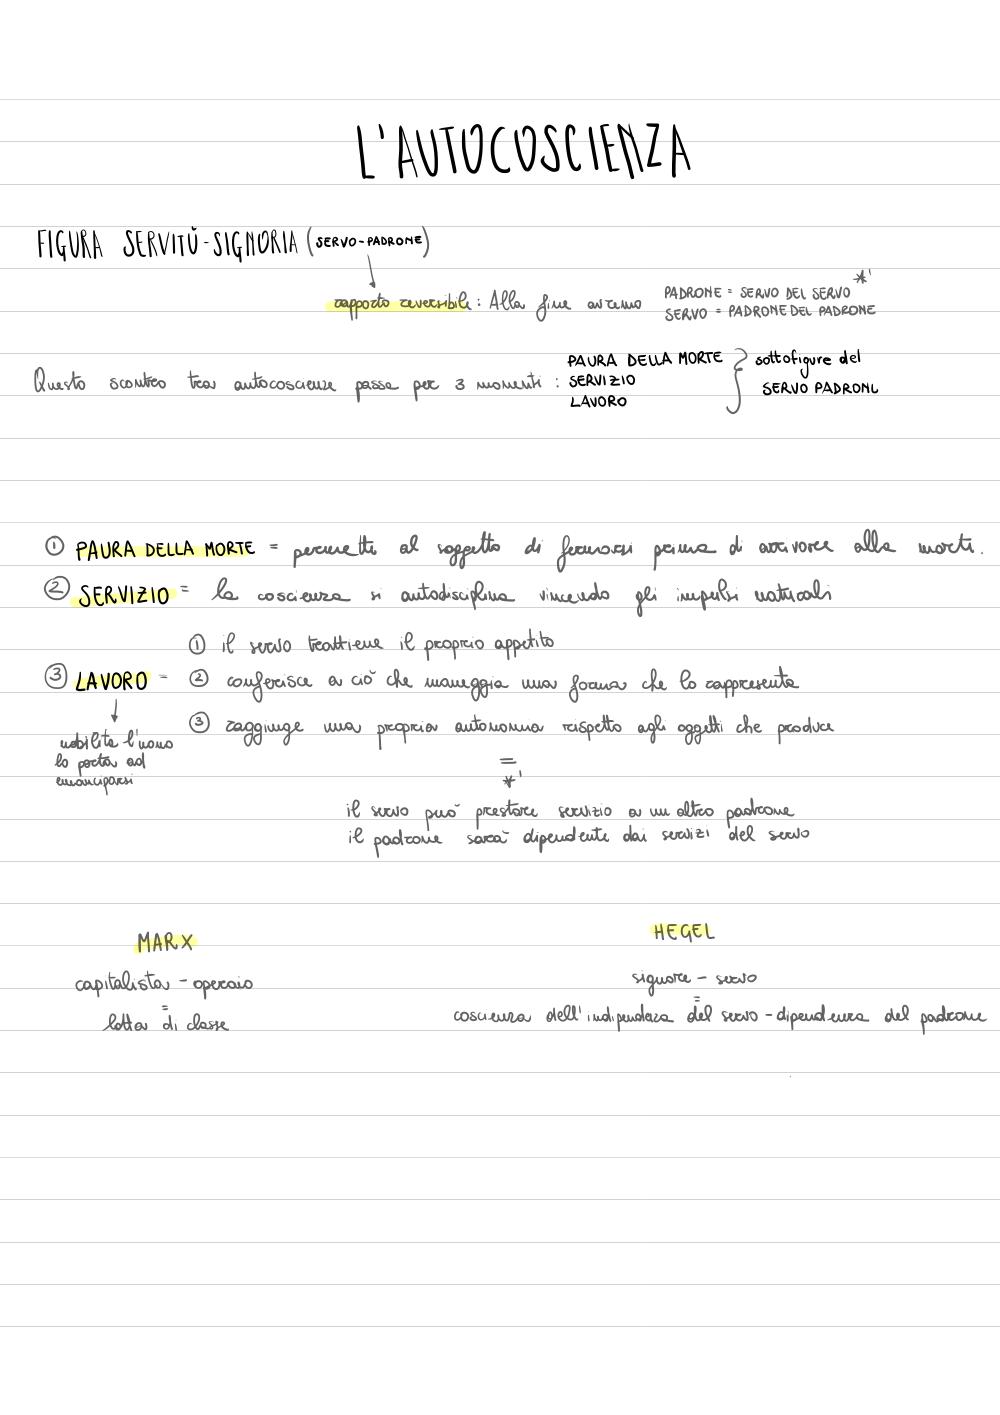 L'AUTOCOSCIENZA
FIGURA SERVITÙ-SIGNORIA (SERVO-PADRONE)
rapporto reversibile: Alla fine avremo
PADRONE = SERVO DEL SERVO *'
SERVO = PADRONE DEL PADRONE
Questo scontro tra autocoscienze passa per 3 momenti:
PAURA DELLA MORTE
SERVIZIO
LAVORO
sottofigure del
SERVO PADRONE
① PAURA DELLA MORTE = permette al soggetto di fermarsi prima di arrivare alla morte.
② SERVIZIO = la coscienza si autodisciplina vincendo gli impulsi naturali
③ LAVORO -
① il servo trattiene il proprio appetito
② conferisce a ciò che maneggia una forma che lo rappresenta
③ raggiunge una propria autonomia rispetto agli oggetti che produce
nobilita l'uomo
lo porta ad
emanciparsi
=
*'
il servo può prestare servizio a un altro padrone
il padrone sarà dipendente dai servizi del servo
MARX
capitalista - operaio
=
lotta di classe
HEGEL
signore - servo
=
coscienza dell'indipendenza del servo - dipendenza del padrone